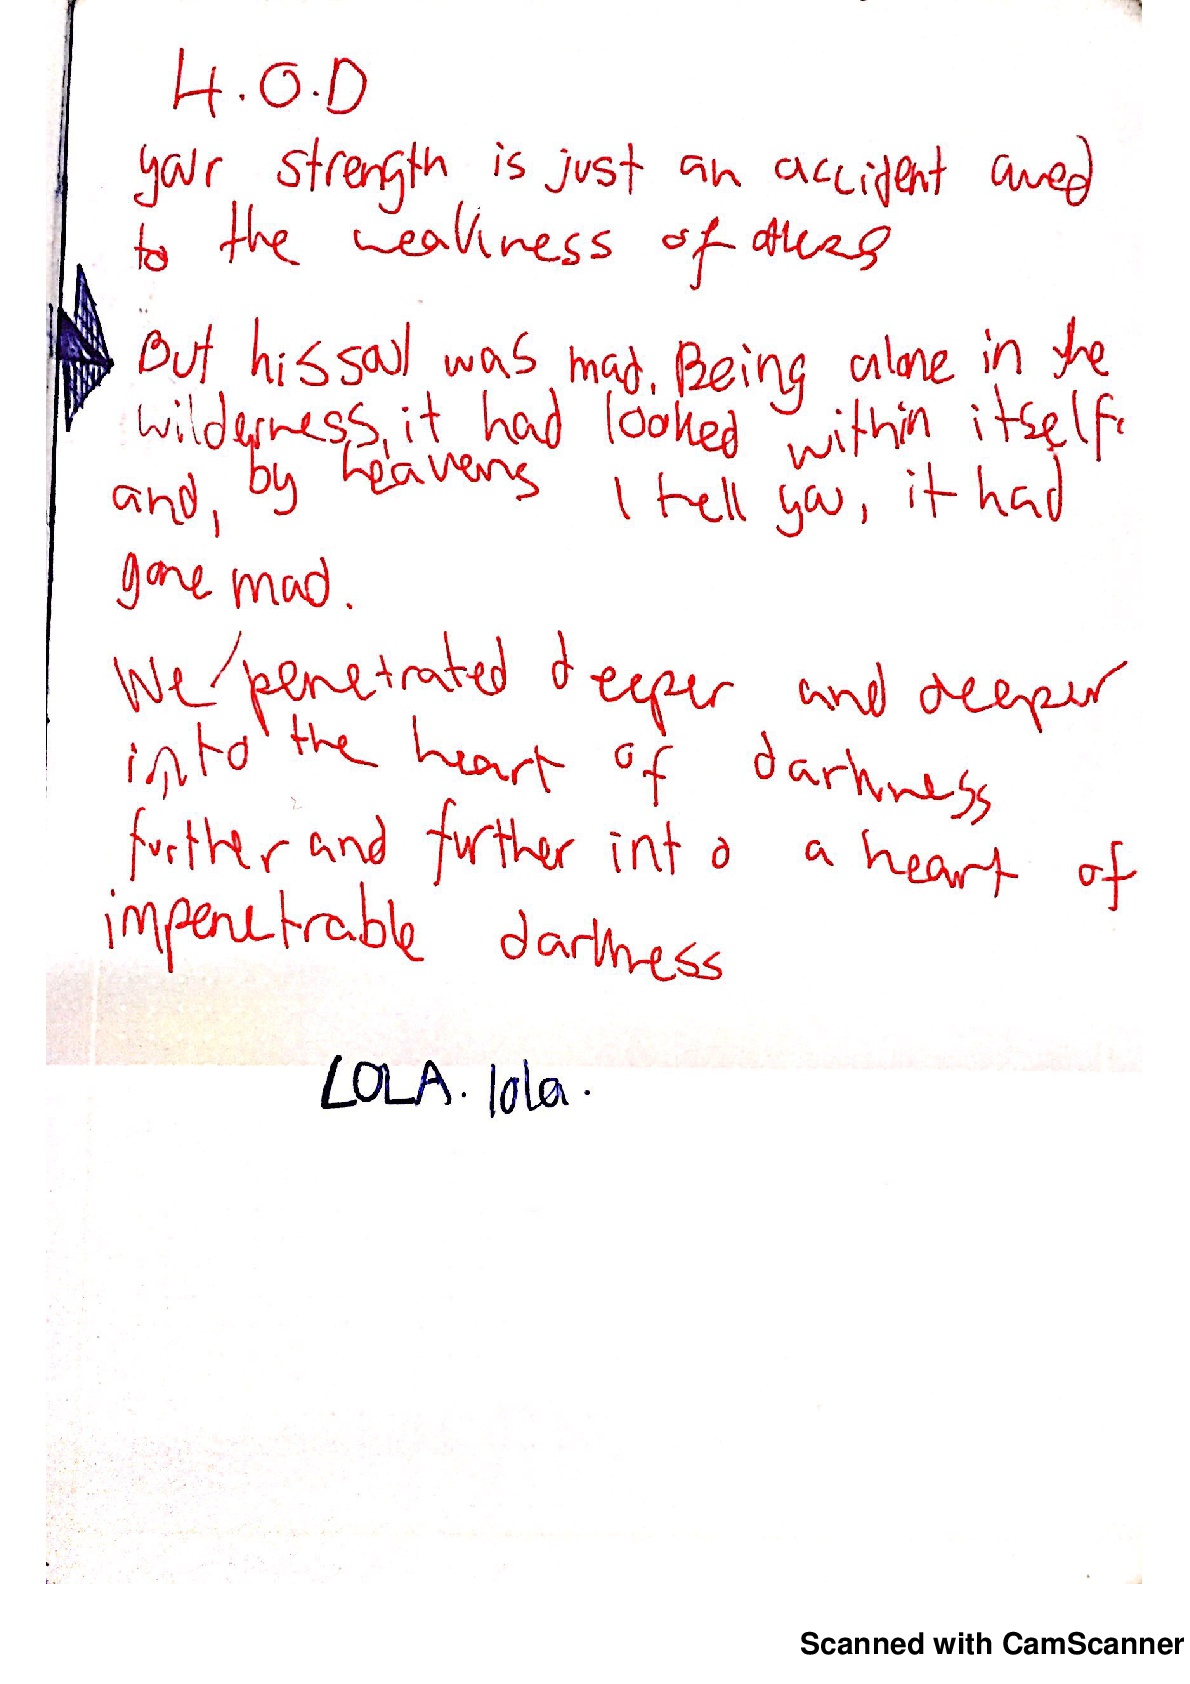 H.O.D
your strength is just an accident owed
to the weakness of others
But his soul was mad. Being alone in the
wilderness, it had looked within itself.
and, by heavens I tell you, it had
gone mad.
We penetrated deeper and deeper
into the heart of darkness
further and further into a heart of
impenetrable darkness
LOLA. lola.
Scanned with CamScanner